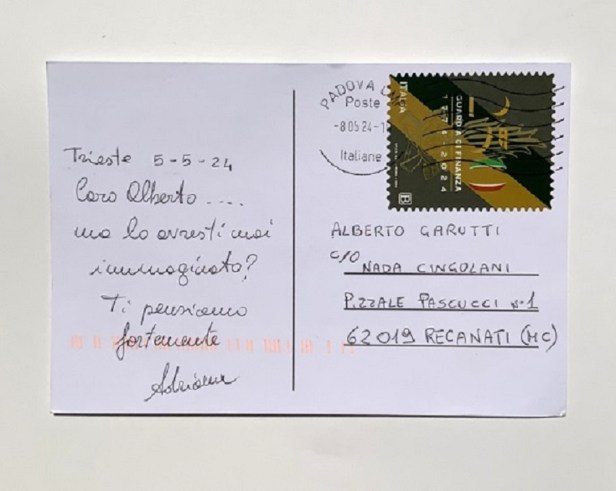 Trieste 5-5-24
Caro Alberto ....
ma lo avresti mai
immaginato?
Ti pensiamo
fortemente
Adriana
PADOVA
Poste
-8.05.24-1
Italiane
ITALIA
GUARDIA DI FINANZA
1774-2024
B
ALBERTO GARUTTI
c/o NADA CINGOLANI
P.ZZALE PASCUCCI N°1
62019 RECANATI (MC)